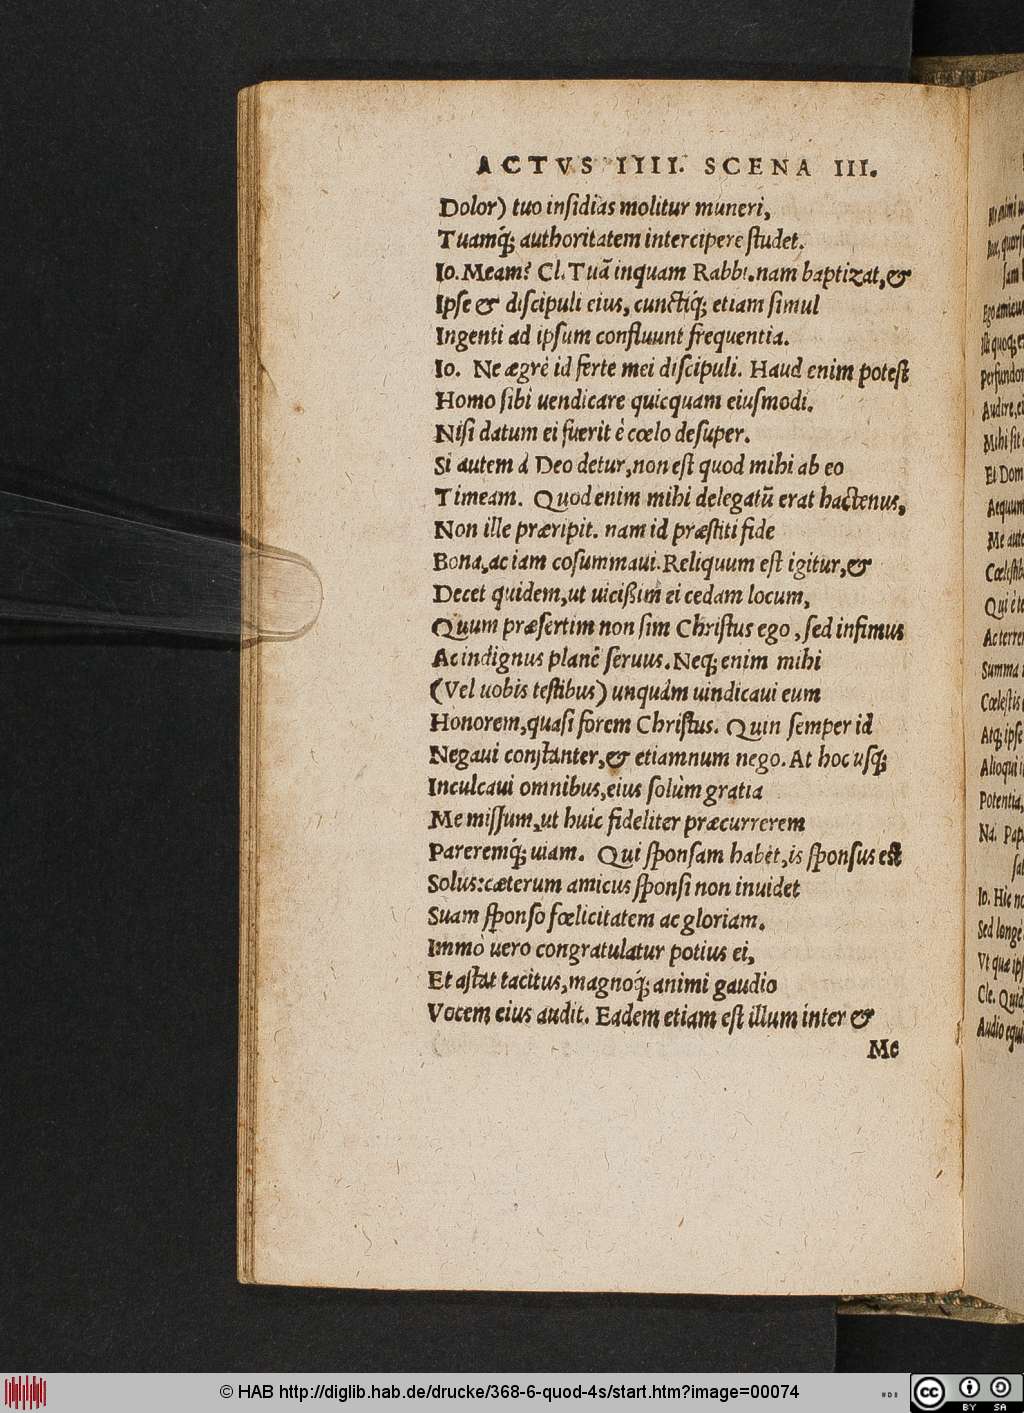 ACTVS IIII. SCENA III.
Dolor) tuo insidias molitur muneri,
Tuamq́; authoritatem intercipere studet.
Io. Meam? Cl. Tuā inquam Rabbi. nam baptizat, &
Ipse & discipuli eius, cunctiq́; etiam simul
Ingenti ad ipsum confluunt frequentia.
Io. Ne ægrè id ferte mei discipuli. Haud enim potest
Homo sibi uendicare quicquam eiusmodi.
Nisi datum ei fuerit è cœlo desuper.
Si autem à Deo detur, non est quod mihi ab eo
Timeam. Quod enim mihi delegatū erat hactenus,
Non ille præripit. nam id præstiti fide
Bona, ac iam cosummaui. Reliquum est igitur, &
Decet quidem, ut uicißim ei cedam locum,
Quum præsertim non sim Christus ego, sed infimus
Ac indignus planè seruus. Neq; enim mihi
(Vel uobis testibus) unquàm uindicaui eum
Honorem, quasi forem Christus. Quin semper id
Negaui constanter, & etiamnum nego. At hoc usq;
Inculcaui omnibus, eius solùm gratia
Me missum, ut huic fideliter præcurrerem
Pareremq́; uiam. Qui sponsam habet, is sponsus est
Solus: cæterum amicus sponsi non inuidet
Suam sponso fœlicitatem ac gloriam.
Immò uero congratulatur potius ei,
Et astat tacitus, magnoq́; animi gaudio
Vocem eius audit. Eadem etiam est illum inter &
Me
Ego amicu
Perfundor
Audire, ei
Mihi sit
Et Dom
Aequum
Me aute
Cœlestib
Qui è te
Ac terre
Summa
Cœlestis
Atq; ipse
Alioqui i
Potentia,
Na. Pap
Io. Hic no
Sed longè
Vt quæ ip
Cle. Quid
Audio equi
© HAB http://diglib.hab.de/drucke/368-6-quod-4s/start.htm?image=00074
HAB
cc BY SA